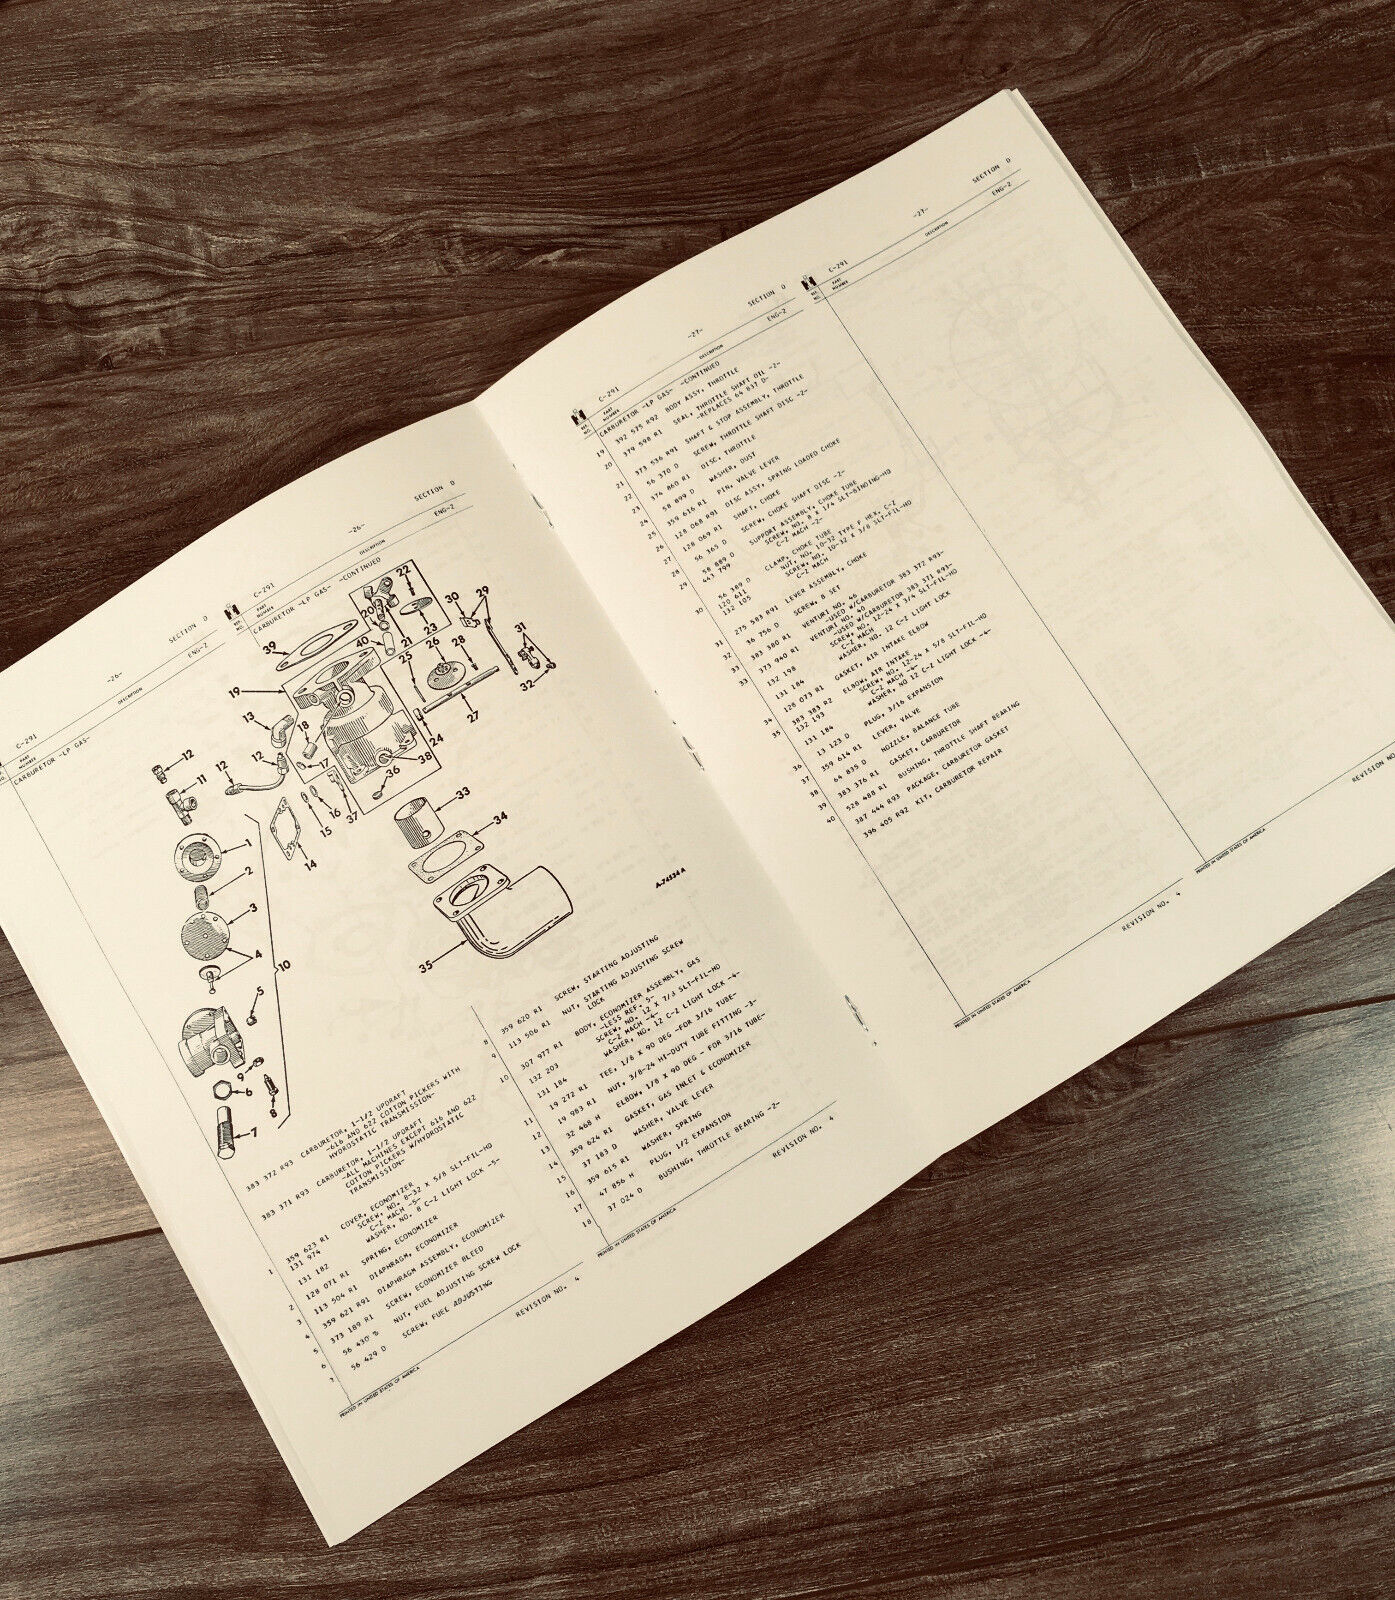 -26-
SECTION D
C-291
ENG-2
PART
NUMBER
DESCRIPTION
CARBURETOR -LP GAS-
-26-
SECTION D
C-291
ENG-2
REF.
NO.
PART
NUMBER
DESCRIPTION
CARBURETOR -LP GAS- -CONTINUED
39
19
13
12
12
12
11
18
17
15
16
37
14
36
38
24
25
40
20
21
22
23
26
28
27
30
29
31
32
33
34
35
1
2
3
4
5
10
9
6
8
7
A-74534A
383 372 R93 CARBURETOR, 1-1/2 UPDRAFT
-616 AND 622 COTTON PICKERS WITH
HYDROSTATIC TRANSMISSION-
383 371 R93 CARBURETOR, 1-1/2 UPDRAFT,
-ALL MACHINES EXCEPT 616 AND 622
COTTON PICKERS W/HYDROSTATIC
TRANSMISSION-
1 359 623 R1 COVER, ECONOMIZER
131 974 SCREW, NO. 8-32 X 5/8 SLT-FIL-HD
C-Z MACH -5-
131 182 WASHER, NO. 8 C-Z LIGHT LOCK -5-
2 128 071 R1 SPRING, ECONOMIZER
3 113 504 R1 DIAPHRAGM, ECONOMIZER
4 359 621 R91 DIAPHRAGM ASSEMBLY, ECONOMIZER
5 373 189 R1 SCREW, ECONOMIZER BLEED
6 56 430 D NUT, FUEL ADJUSTING SCREW LOCK
7 56 429 D SCREW, FUEL ADJUSTING
PRINTED IN UNITED STATES OF AMERICA
REVISION NO. 4
8 359 620 R1 SCREW, STARTING ADJUSTING
9 113 506 R1 NUT, STARTING ADJUSTING SCREW
LOCK
10 307 977 R1 BODY, ECONOMIZER ASSEMBLY, GAS
-LESS REF. 5-
132 203 SCREW, NO. 12 X 7/3 SLT-FIL-HD
C-Z MACH -4-
131 184 WASHER, NO. 12 C-Z LIGHT LOCK -4-
11 19 272 R1 TEE, 1/8 X 90 DEG -FOR 3/16 TUBE-
12 19 983 R1 NUT, 3/8-24 HI-DUTY TUBE FITTING -3-
13 32 468 H ELBOW, 1/8 X 90 DEG - FOR 3/16 TUBE-
14 359 624 R1 GASKET, GAS INLET & ECONOMIZER
15 37 183 D WASHER, VALVE LEVER
16 359 615 R1 WASHER, SPRING
17 47 856 H PLUG, 1/2 EXPANSION
18 37 024 D BUSHING, THROTTLE BEARING -2-
PRINTED IN UNITED STATES OF AMERICA
REVISION NO. 4
-27-
SECTION D
C-291
ENG-2
REF.
NO.
PART
NUMBER
DESCRIPTION
CARBURETOR -LP GAS- -CONTINUED
19 392 575 R92 BODY ASSY, THROTTLE
20 379 598 R1 SEAL, THROTTLE SHAFT OIL -2-
-REPLACES 64 837 D-
21 373 536 R91 SHAFT & STOP ASSEMBLY, THROTTLE
22 56 370 D SCREW, THROTTLE SHAFT DISC -2-
23 374 860 R1 DISC, THROTTLE
24 58 899 D WASHER, DUST
25 359 616 R1 PIN, VALVE LEVER
26 128 068 R91 DISC ASSY, SPRING LOADED CHOKE
27 128 069 R1 SHAFT, CHOKE
28 56 365 D SCREW, CHOKE SHAFT DISC -2-
29 58 889 D SUPPORT ASSEMBLY, CHOKE TUBE
443 799 SCREW, NO. 8 X 1/4 SLT-BINDING-HD
C-Z MACH -2-
30 56 369 D CLAMP, CHOKE TUBE
120 611 NUT, NO. 10-32 TYPE F HEX, C-Z
132 105 SCREW, NO. 10-32 X 3/8 SLT-FIL-HD
C-Z MACH
31 275 583 R91 LEVER ASSEMBLY, CHOKE
32 36 756 D SCREW, 8 SET
33 383 380 R1 VENTURI NO. 46
-USED W/CARBURETOR 383 372 R93-
33 373 940 R1 VENTURI NO. 40
-USED W/CARBURETOR 383 371 R93-
132 198 SCREW, NO. 12-24 X 3/4 SLT-FIL-HD
C-Z MACH
131 184 WASHER, NO. 12 C-Z LIGHT LOCK
34 128 073 R1 GASKET, AIR INTAKE ELBOW
35 383 383 R2 ELBOW, AIR INTAKE
132 193 SCREW, NO. 12-24 X 5/8 SLT-FIL-HD
C-Z MACH -4-
131 184 WASHER, NO 12 C-Z LIGHT LOCK -4-
36 13 123 D PLUG, 3/16 EXPANSION
37 359 614 R1 LEVER, VALVE
38 64 835 D NOZZLE, BALANCE TUBE
39 383 376 R1 GASKET, CARBURETOR
40 528 488 R1 BUSHING, THROTTLE SHAFT BEARING
387 444 R93 PACKAGE, CARBURETOR GASKET
396 405 R92 KIT, CARBURETOR REPAIR
PRINTED IN UNITED STATES OF AMERICA
REVISION NO. 4
-27-
SECTION D
C-291
ENG-2
REF.
NO.
PART
NUMBER
DESCRIPTION
PRINTED IN UNITED STATES OF AMERICA
REVISION NO.